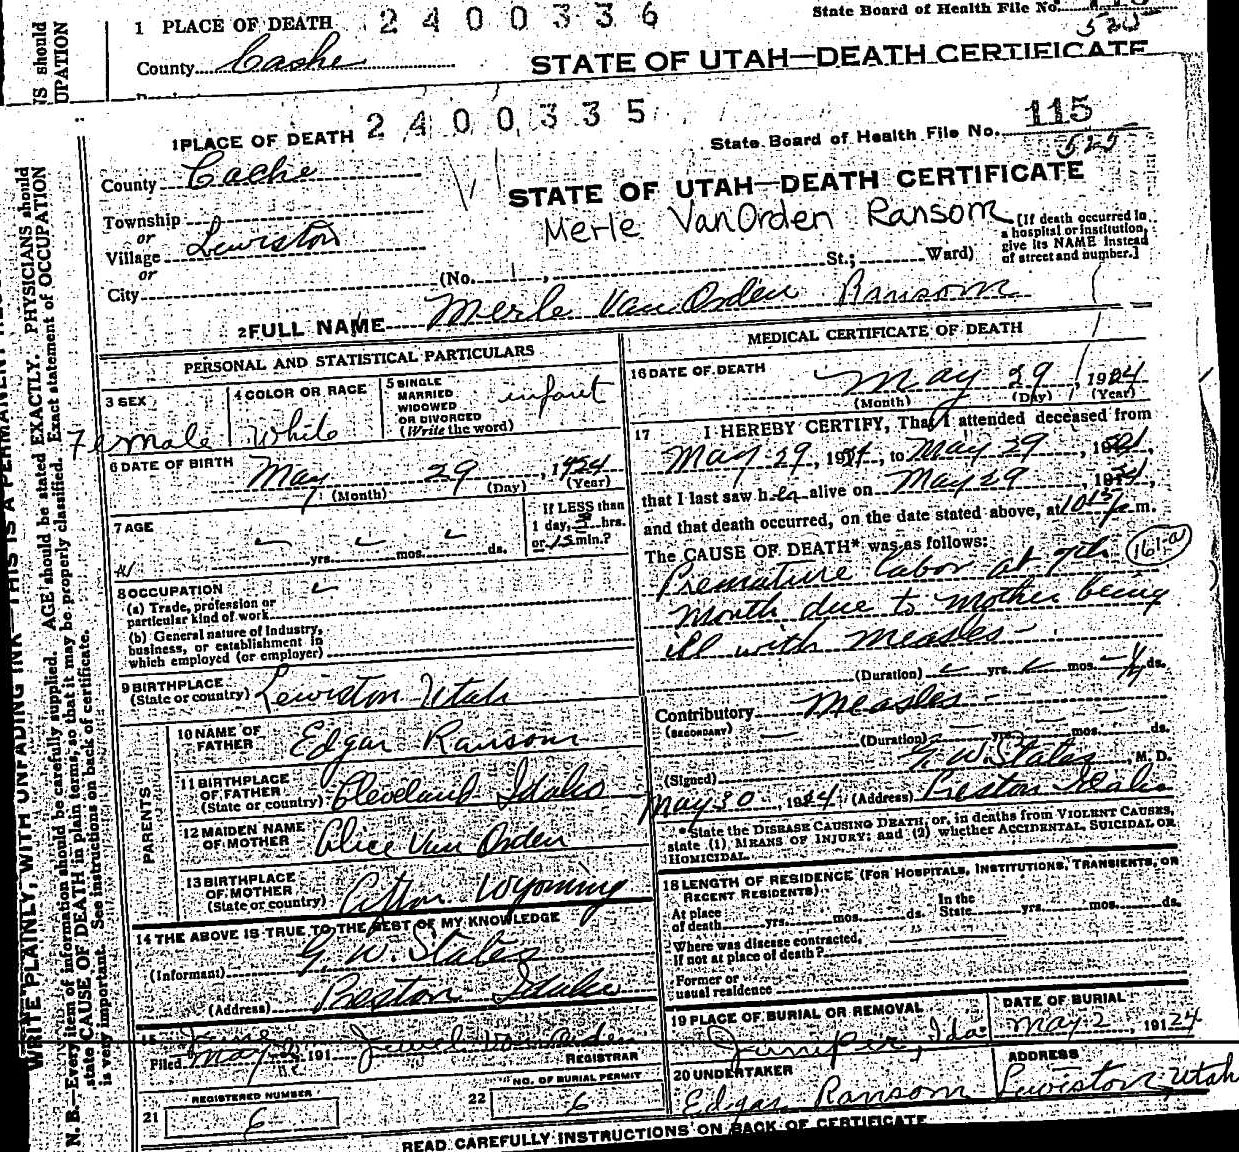 NS should
UPATION
1 PLACE OF DEATH 2400336
State Board of Health File No.
525
County Cache
STATE OF UTAH—DEATH CERTIFICATE
1 PLACE OF DEATH 2400335
State Board of Health File No. 115
525
County Cache
STATE OF UTAH—DEATH CERTIFICATE
Township
or
Village Lewiston
or
City
Merle VanOrden Ransom
(No. , St.; Ward)
[If death occurred in
a hospital or institution,
give its NAME instead
of street and number.]
2 FULL NAME Merle Van Orden Ransom
PERSONAL AND STATISTICAL PARTICULARS
3 SEX
Female
4 COLOR OR RACE
White
5 SINGLE
MARRIED
WIDOWED
OR DIVORCED
(Write the word)
infant
6 DATE OF BIRTH
May 29, 1924
(Month) (Day) (Year)
7 AGE
yrs. mos. ds.
If LESS than
1 day, hrs.
or 15 min.?
8 OCCUPATION
(a) Trade, profession or
particular kind of work
(b) General nature of Industry,
business, or establishment in
which employed (or employer)
9 BIRTHPLACE
(State or country) Lewiston Utah
PARENTS
10 NAME OF
FATHER Edgar Ransom
11 BIRTHPLACE
OF FATHER
(State or country) Cleveland Idaho
12 MAIDEN NAME
OF MOTHER Alice Van Orden
13 BIRTHPLACE
OF MOTHER
(State or country) Wyoming
14 THE ABOVE IS TRUE TO THE BEST OF MY KNOWLEDGE
(Informant) G. W. States
(Address) Preston Idaho
15
Filed May, 191 Jewel Van Orden
REGISTRAR
21 REGISTERED NUMBER
6
22 NO. OF BURIAL PERMIT
6
MEDICAL CERTIFICATE OF DEATH
16 DATE OF DEATH
May 29, 1924
(Month) (Day) (Year)
17 I HEREBY CERTIFY, That I attended deceased from
May 29, 1924, to May 29, 1924,
that I last saw her alive on May 29, 1924,
and that death occurred, on the date stated above, at 10 15 p. m.
The CAUSE OF DEATH* was as follows:
161-a
Premature labor at 7th
month due to mother being
ill with measles
(Duration) yrs. mos. ds.
Contributory Measles
(SECONDARY)
(Duration) yrs. mos. ds.
(Signed) G. W. States, M. D.
May 30, 1924 (Address) Preston Idaho
*State the DISEASE CAUSING DEATH, or, in deaths from VIOLENT CAUSES,
state (1) MEANS OF INJURY; and (2) whether ACCIDENTAL, SUICIDAL OR
HOMICIDAL.
18 LENGTH OF RESIDENCE (FOR HOSPITALS, INSTITUTIONS, TRANSIENTS, OR
RECENT RESIDENTS)
At place
of death yrs. mos. ds.
In the
State yrs. mos. ds.
Where was disease contracted,
If not at place of death?
Former or
usual residence
19 PLACE OF BURIAL OR REMOVAL
Juniper, Ida
DATE OF BURIAL
May 2, 19124
20 UNDERTAKER
Edgar Ransom
ADDRESS
Lewiston Utah
READ CAREFULLY INSTRUCTIONS ON BACK OF CERTIFICATE
WRITE PLAINLY, WITH UNFADING INK—THIS IS A PERMANENT
N. B.—Every item of information should be carefully supplied. AGE should be stated EXACTLY. PHYSICIANS should
state CAUSE OF DEATH in plain terms, so that it may be properly classified. Exact statement of OCCUPATION
is very important. See instructions on back of certificate.